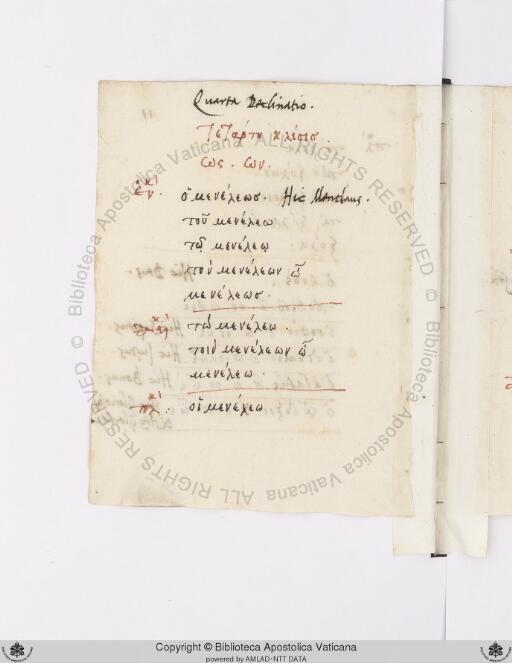 Quarta Declinatio.
Τετάρτη κλίσισ.
ως. ων.
ἑνικ. ὁ μενέλεωσ. Hic Menelaus.
τοῦ μενέλεω
τῷ μενέλεω
τὸν μενέλεων ὦ
μενέλεωσ.
τὼ μενέλεω.
τοιν μενέλεων ὦ
μενέλεω.
οἱ μενέλεω
Copyright © Biblioteca Apostolica Vaticana
powered by AMLAD-NTT DATA
© Biblioteca Apostolica Vaticana ALL RIGHTS RESERVED
© Biblioteca Apostolica Vaticana ALL RIGHTS RESERVED